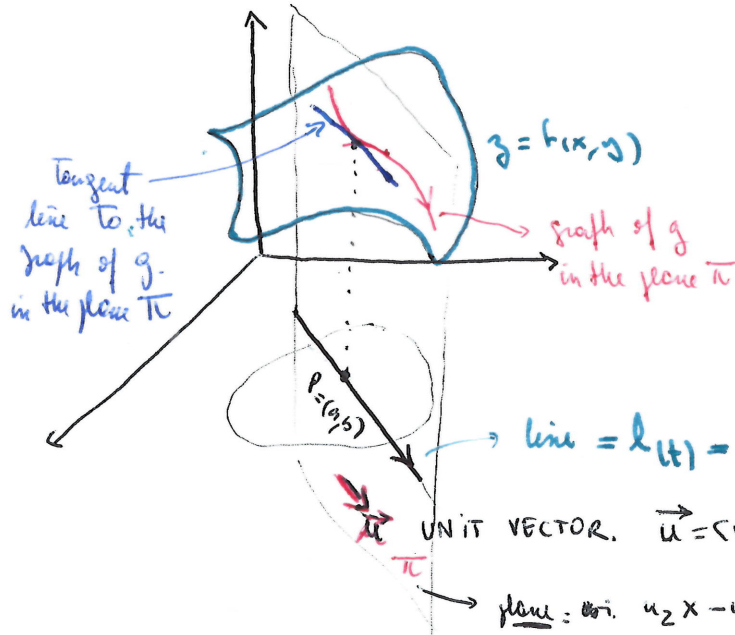 z = f(x, y)
Tangent
line To, the
graph of g.
in the plane π
graph of g
in the plane π
P=(a,b)
line = l(t) =
u⃗ UNIT VECTOR. u⃗ =
π
plane: u₂ x -